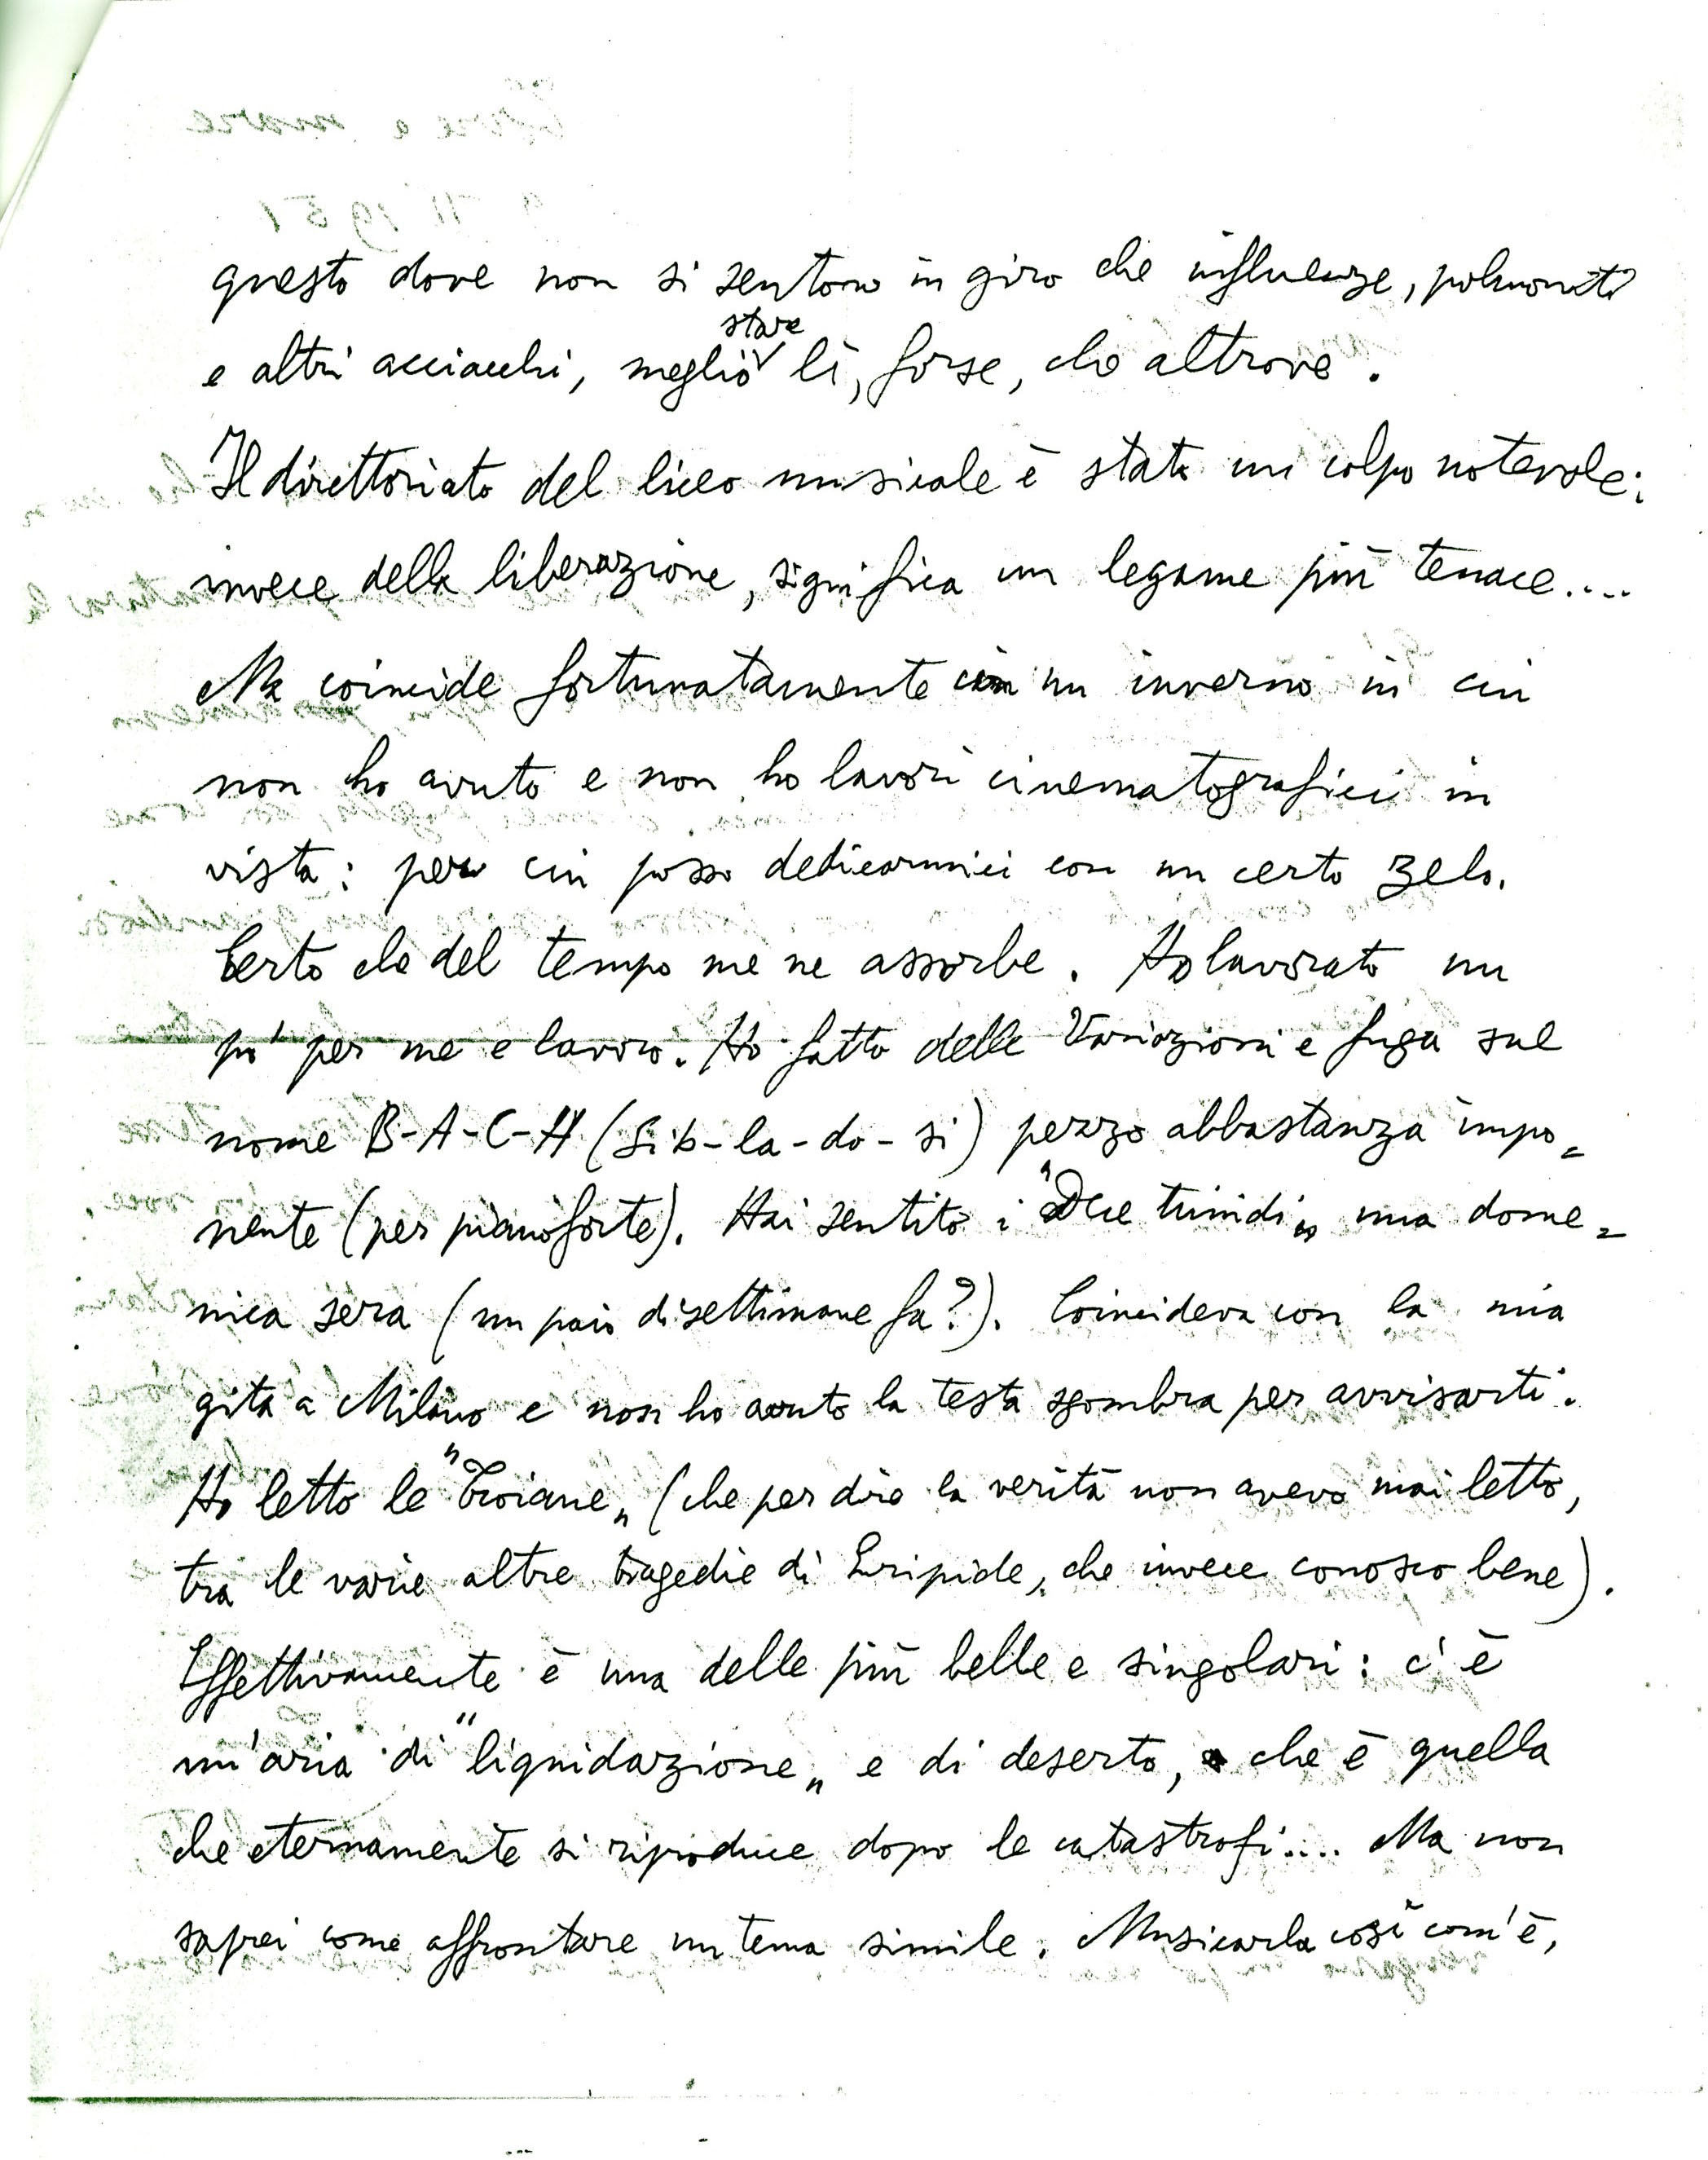 questo dove non si sentono in giro che influenze, polmoniti
e altri acciacchi, meglio stare lì, forse, che altrove.
Il direttoriato del liceo musicale è stato un colpo notevole:
invece della liberazione, significa un legame più tenace....
Ma coincide fortunatamente con un inverno in cui
non ho avuto e non ho lavori cinematografici in
vista: per cui posso dedicarmici con un certo zelo.
Certo che del tempo me ne assorbe. Ho lavorato un
po' per me e lavoro. Ho fatto delle Variazioni e fuga sul
nome B-A-C-H (si b-la-do-si) pezzo abbastanza impo=
nente (per pianoforte). Hai sentito i "Due timidi" una dome=
nica sera (un paio di settimane fa?). Coincideva con la mia
gita a Milano e non ho avuto la testa sgombra per avvisarti.
Ho letto le "Troiane" (che per dire la verità non avevo mai letto,
tra le varie altre tragedie di Euripide, che invece conosco bene).
Effettivamente è una delle più belle e singolari: c'è
un'aria di "liquidazione" e di deserto, che è quella
che eternamente si riproduce dopo le catastrofi.... Ma non
saprei come affrontare un tema simile. Musicarla così com'è,